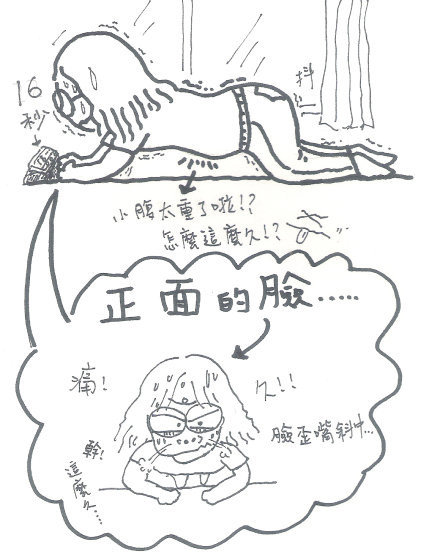 16
秒
抖
小腹太重了啦!?
怎麼這麼久!?
正面的臉......
痛!
久!!
幹!
這麼久......
臉歪嘴斜...